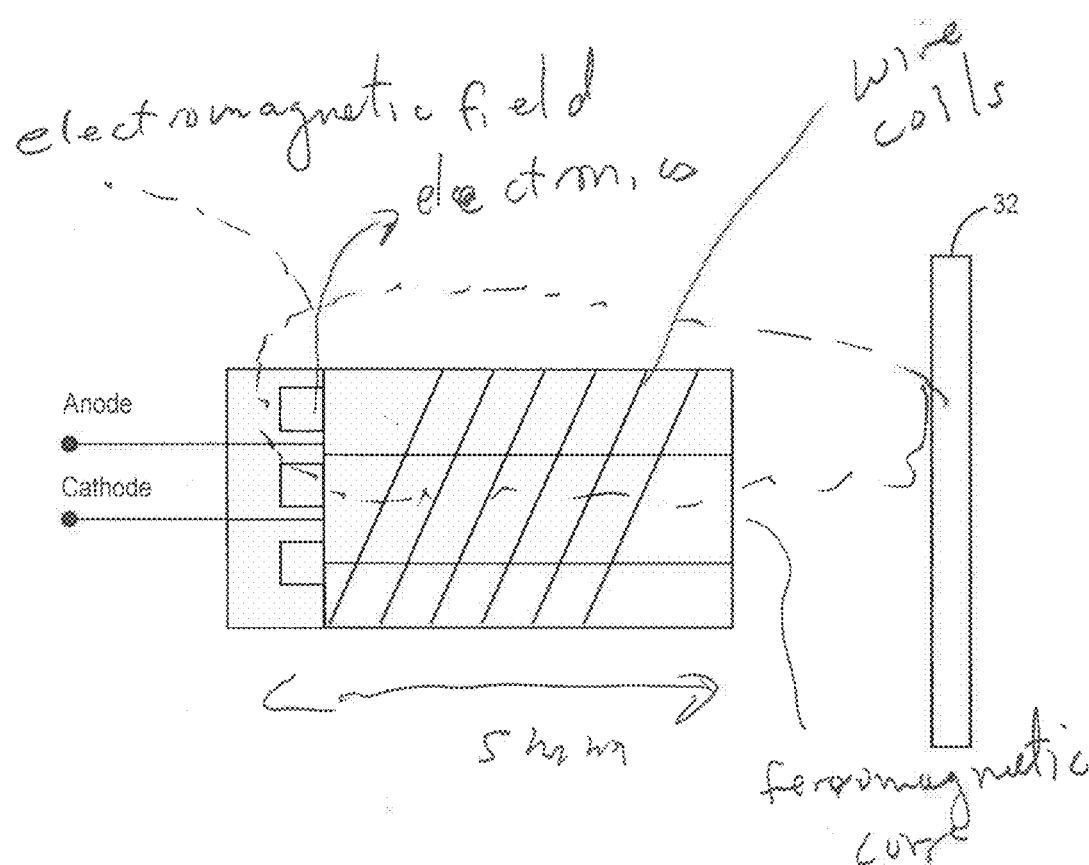 electromagnetic field
electronics
wire
coils
32
Anode
Cathode
5 mm
ferromagnetic
core